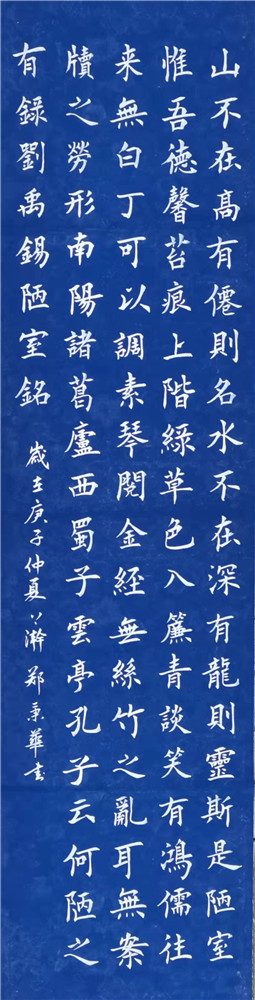 山不在高有僊則名水不在深有龍則靈斯是陋室
惟吾德馨苔痕上階綠草色入簾青談笑有鴻儒往
来無白丁可以調素琴閱金經無絲竹之亂耳無案
牘之勞形南陽諸葛廬西蜀子雲亭孔子云何陋之
有錄劉禹錫陋室銘
歲在庚子仲夏瀚郑秉華书